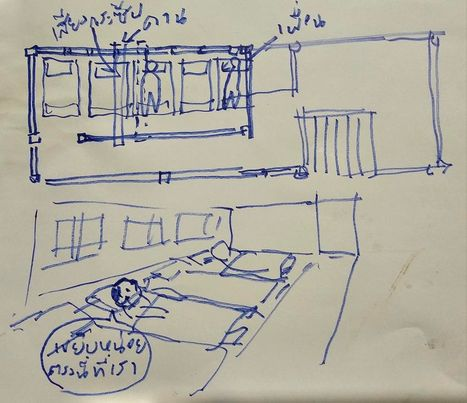 เสียงกระซิบ
คาน
เพื่อน
เขยิบหน่อย
ตรงนี้ที่เรา